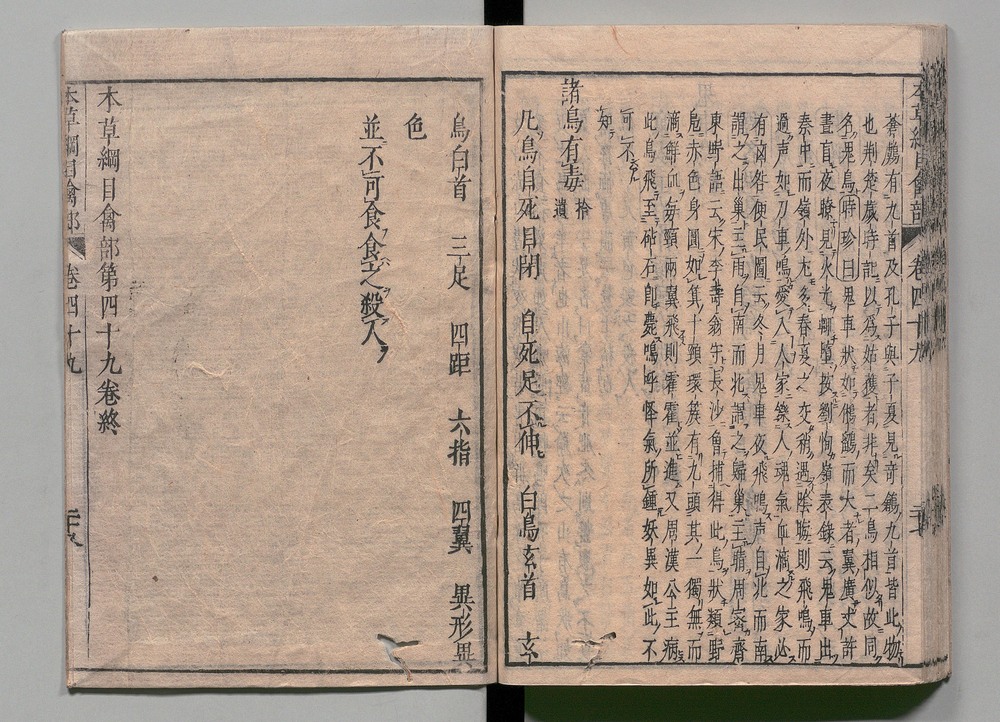 蒼鸆有九首及孔子與子夏見奇鶬九首皆此物
也荆楚歳時記以爲姑獲者非矣二鳥相似故同
名鬼鳥時珍曰鬼車狀如鵂鶹而大者翼廣丈許
晝盲夜瞭見火光輒墮按劉恂嶺表錄云鬼車出
秦中而嶺外尤多春夏之交稍遇陰晦則飛鳴而
過声如刀車鳴愛入人家鑠人魂氣血滴之家必
有凶咎便民圖云冬月鬼車夜飛鳴声自北而南
謂之出巢主雨自南而北謂之歸巢主晴周密齊
東野語云宋李壽翁守長沙曾捕得此鳥狀類野
鳬赤色身圓如箕十頸環簇有九頭其一獨無而
滴鮮血每頸兩翼飛則霍霍並進又周漢公主病
此鳥飛至砧石即薨嗚呼怪氣所鍾妖異如此不
可不
知
諸鳥有毒 拾遺
凡鳥自死目閉 自死足不伸 白鳥玄首 玄
鳥白首 三足 四距 六指 四翼 異形異
色
並不可食食之殺人
本草綱目禽部第四十九巻終
本草綱目禽部 巻四十九